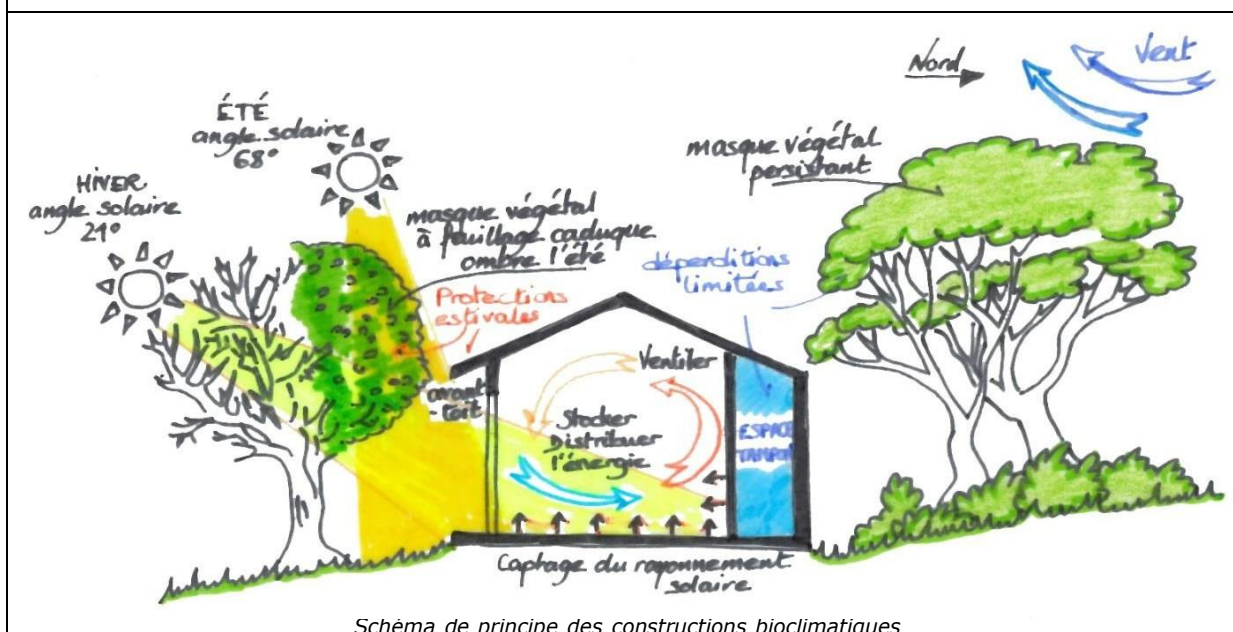 Nord
Vent
ÉTÉ
angle solaire
68°
HIVER
angle solaire
21°
masque végétal
à feuillage caduque
ombre l'été
Protections
estivales
masque végétal
persistant
déperditions
limitées
avant
-toit
Ventiler
Stocker
Distribuer
l'énergie
ESPACE
TAMPON
Captage du rayonnement
solaire
Schéma de principe des constructions bioclimatiques